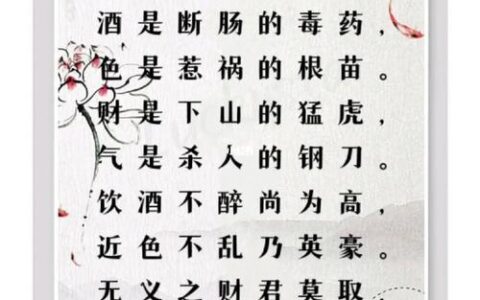 酒是断肠的毒药，
色是惹祸的根苗。
财是下山的猛虎，
气是杀人的钢刀。
饮酒不醉尚为高，
近色不乱乃英豪。
无义之财君莫取，